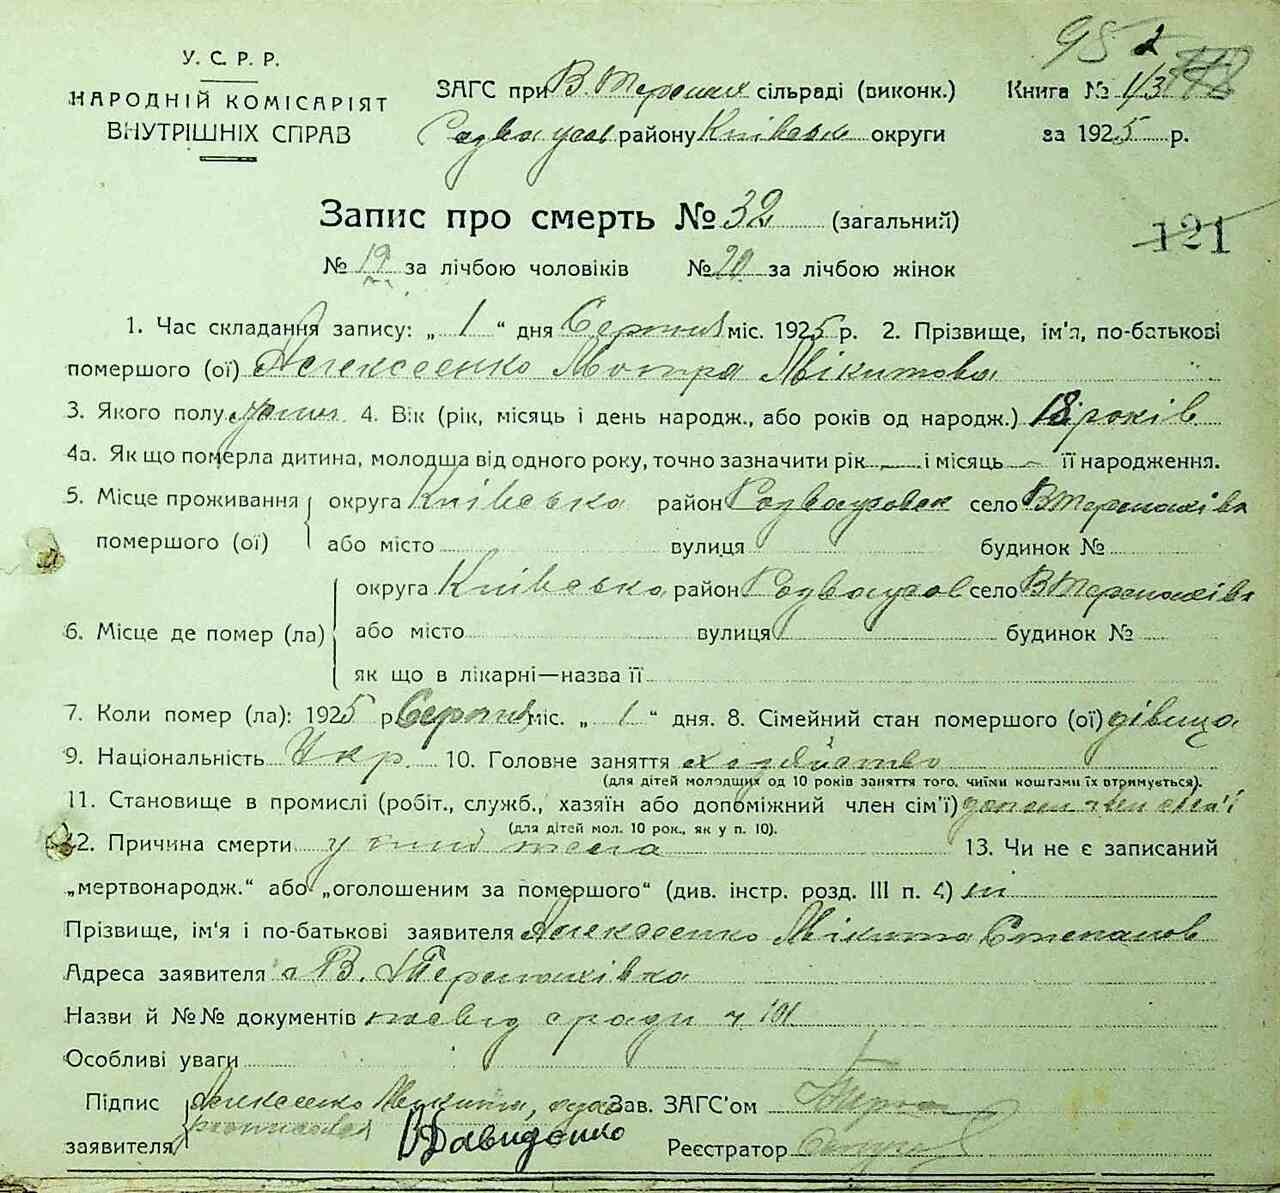 95
У. С. Р. Р.
НАРОДНІЙ КОМІСАРІЯТ
ВНУТРІШНІХ СПРАВ
ЗАГС при В. Терешк сільраді (виконк.)
району Київськ округи
Книга № 1/3
за 1925 р.
Запис про смерть № 32 (загальний)
121
№ 19 за лічбою чоловіків № 20 за лічбою жінок
1. Час складання запису: „ 1 “ дня Серпня міс. 1925 р. 2. Прізвище, ім'я, по-батькові
помершого (ої) Алексеенко Мотра Мікитова
3. Якого полу жін. 4. Вік (рік, місяць і день народж., або років од народж.) 18 років
4а. Як що померла дитина, молодша від одного року, точно зазначити рік — і місяць — її народження.
5. Місце проживання округа Київсько район село В Терешківка
помершого (ої) або місто вулиця будинок №
округа Київсько район село В Терешківка
6. Місце де помер (ла) або місто вулиця будинок №
як що в лікарні—назва її
7. Коли помер (ла): 1925 р. Серпня міс. „ 1 “ дня. 8. Сімейний стан помершого (ої) дівица
9. Національність Укр. 10. Головне заняття хозяйство
(для дітей молодших од 10 років заняття того, чиїми коштами їх втримується).
11. Становище в промислі (робіт., служб., хазяїн або допоміжний член сім'ї) допом член сем'ї
(для дітей мол. 10 рок., як у п. 10).
12. Причина смерти 13. Чи не є записаний
„мертвонародж.“ або „оголошеним за помершого“ (див. інстр. розд. III п. 4) ні
Прізвище, ім'я і по-батькові заявителя Алексеенко Мікита Степанов
Адреса заявителя с В. Терешківка
Назви й №№ документів посвід сради ч 101
Особливі уваги
Підпис Алексеенко Микита, Зав. ЗАГС'ом
заявителя Давиденко Реєстратор